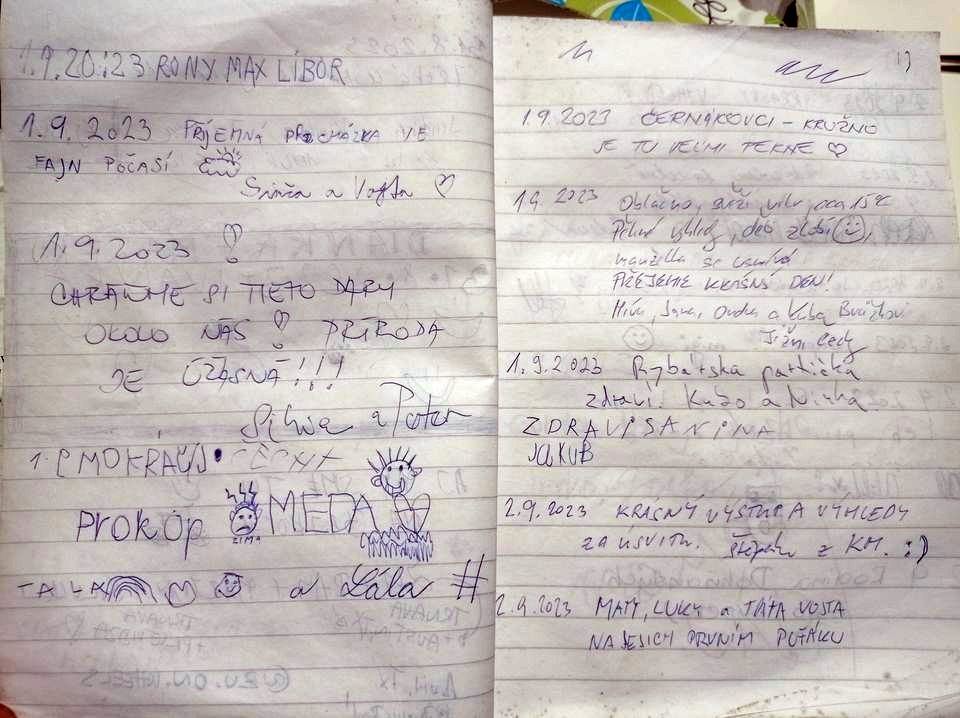 1.9.20:23 RONY MAX LIBOR
1.9.2023 PŘÍJEMNÁ PROCHÁZKA VE
FAJN POČASÍ
Simča a Vojta ♡
1.9.2023 !
CHRAŇME SI TIETO DARY
OKOLO NÁS! PRÍRODA
JE ÚŽASNÁ!!!
Silvia a Peter
1.
Prokop MEĎA
ZIMA
TALA a Lála #
13
1.9.2023 ČERNÁKOVCI - KRUŽNO
JE TU VEĽMI PEKNE ♡
1.9. 2023 Oblačno, svěží vítr, cca 15°C
Pěkný výhled, děti zlobí
manželka se usmívá
PŘEJEME KRÁSNÝ DEN!
Jana, Ondra a Kuba
Jižní Čechy
1.9.2023 Rybárska partička
zdraví. a Ninka
ZDRAVÍ SANINA
JAKUB
2.9.2023 KRÁSNÝ VÝSTUP A VÝHLEDY
ZA ÚSVITU. Štěpán z KM. :)
2.9.2023 MATY, LUKY a TÁTA VOJTA
NA JEJICH PRVNÍM PUŤÁKU